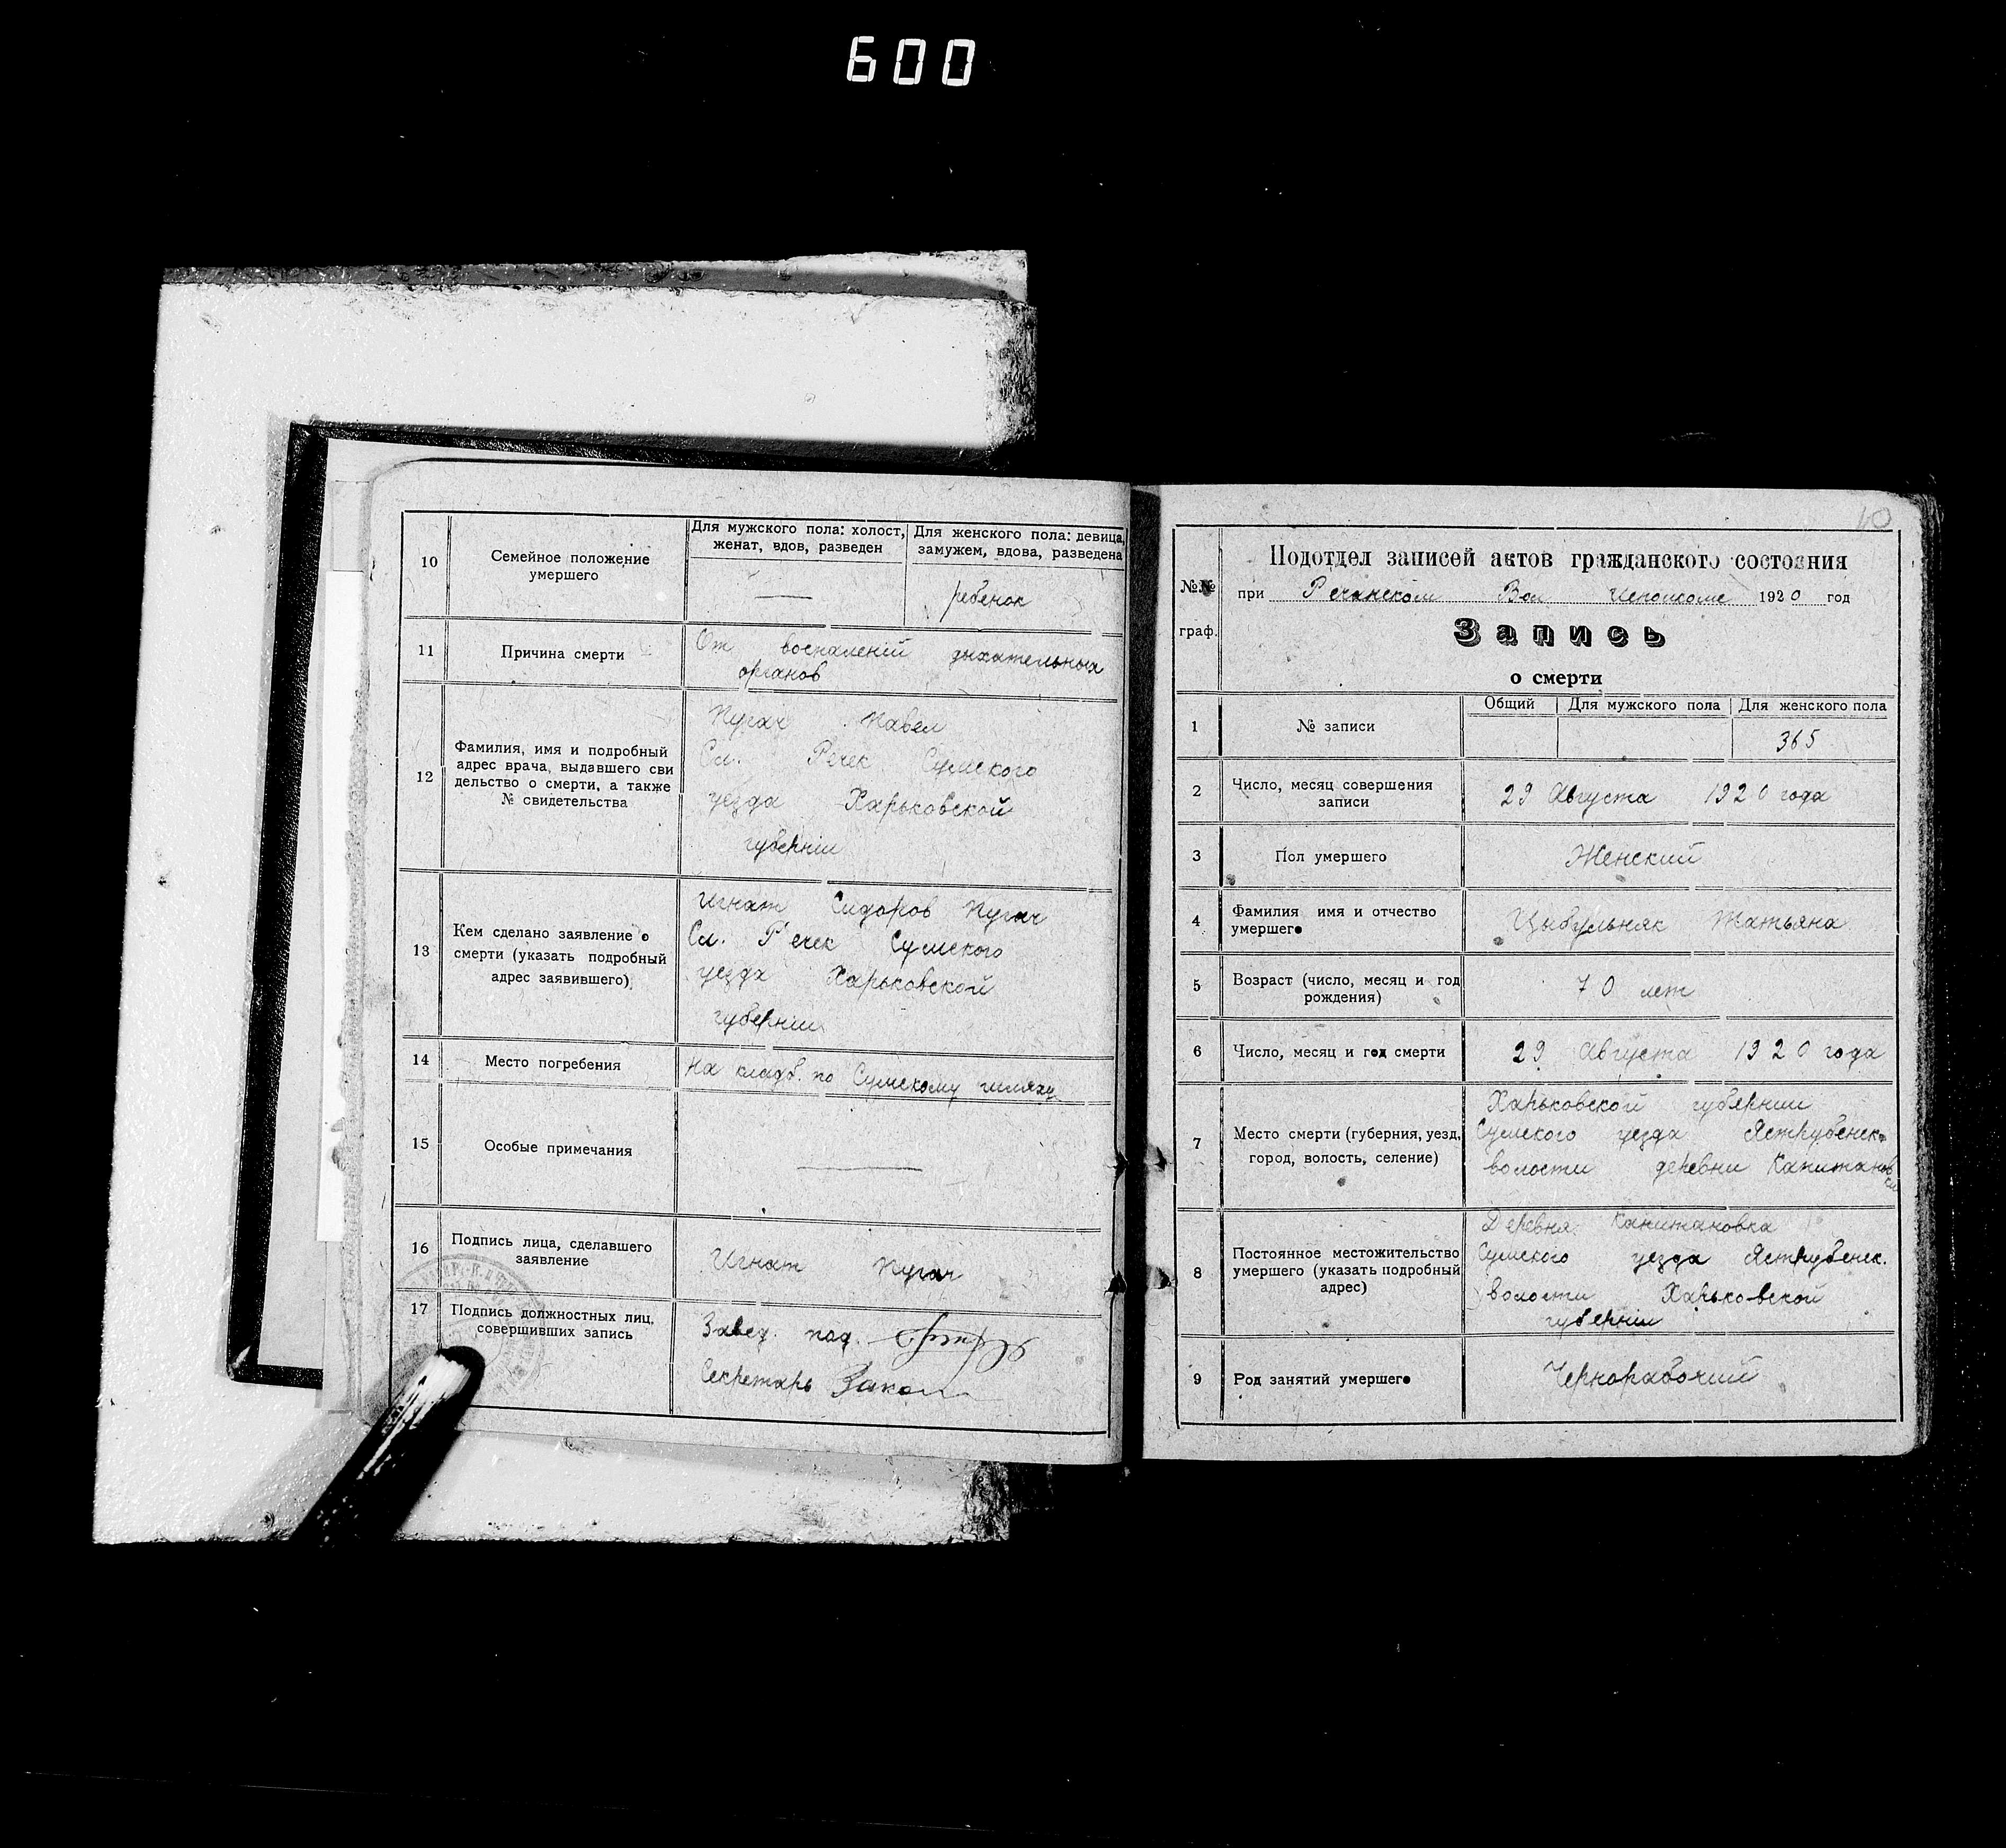 600
10
Семейное положение
умершего
Для мужского пола: холост,
женат, вдов, разведен
Для женского пола: девица,
замужем, вдова, разведена
ребенок
11
Причина смерти
От воспаленій дыхательных
органов
12
Фамилия, имя и подробный
адрес врача, выдавшего сви
дельство о смерти, а также
№ свидетельства
Пугач Павел
Сл. Речек Сумского
уезда Харьковской
губерніи
13
Кем сделано заявление о
смерти (указать подробный
адрес заявившего)
Игнат Сидоров Пугач
Сл. Речек Сумского
уезда Харьковской
губернии
14
Место погребения
На кладб. по Сумскому шляху
15
Особые примечания
16
Подпись лица, сделавшего
заявление
Игнат Пугач
17
Подпись должностных лиц,
совершивших запись
Завед. под.
Секретарь
10
№№
граф.
Подотдел записей актов гражданского состояния
при Речанском Вол Исполкоме 1920 год
Запись
о смерти
1
№ записи
Общий
Для мужского пола
Для женского пола
365
2
Число, месяц совершения
записи
29 Августа 1920 года
3
Пол умершего
Женский
4
Фамилия имя и отчество
умершего
Цыбульняк Татьяна
5
Возраст (число, месяц и год
рождения)
70 лет
6
Число, месяц и год смерти
29 Августа 1920 года
7
Место смерти (губерния, уезд,
город, волость, селение)
Харьковской губернии
Сумского уезда Яструбенск.
волости деревни Капитановки
8
Постоянное местожительство
умершего (указать подробный
адрес)
Деревня Капитановка
Сумского уезда Яструбенск.
волости Харьковской
губерніи
9
Род занятий умершего
Чернорабочий